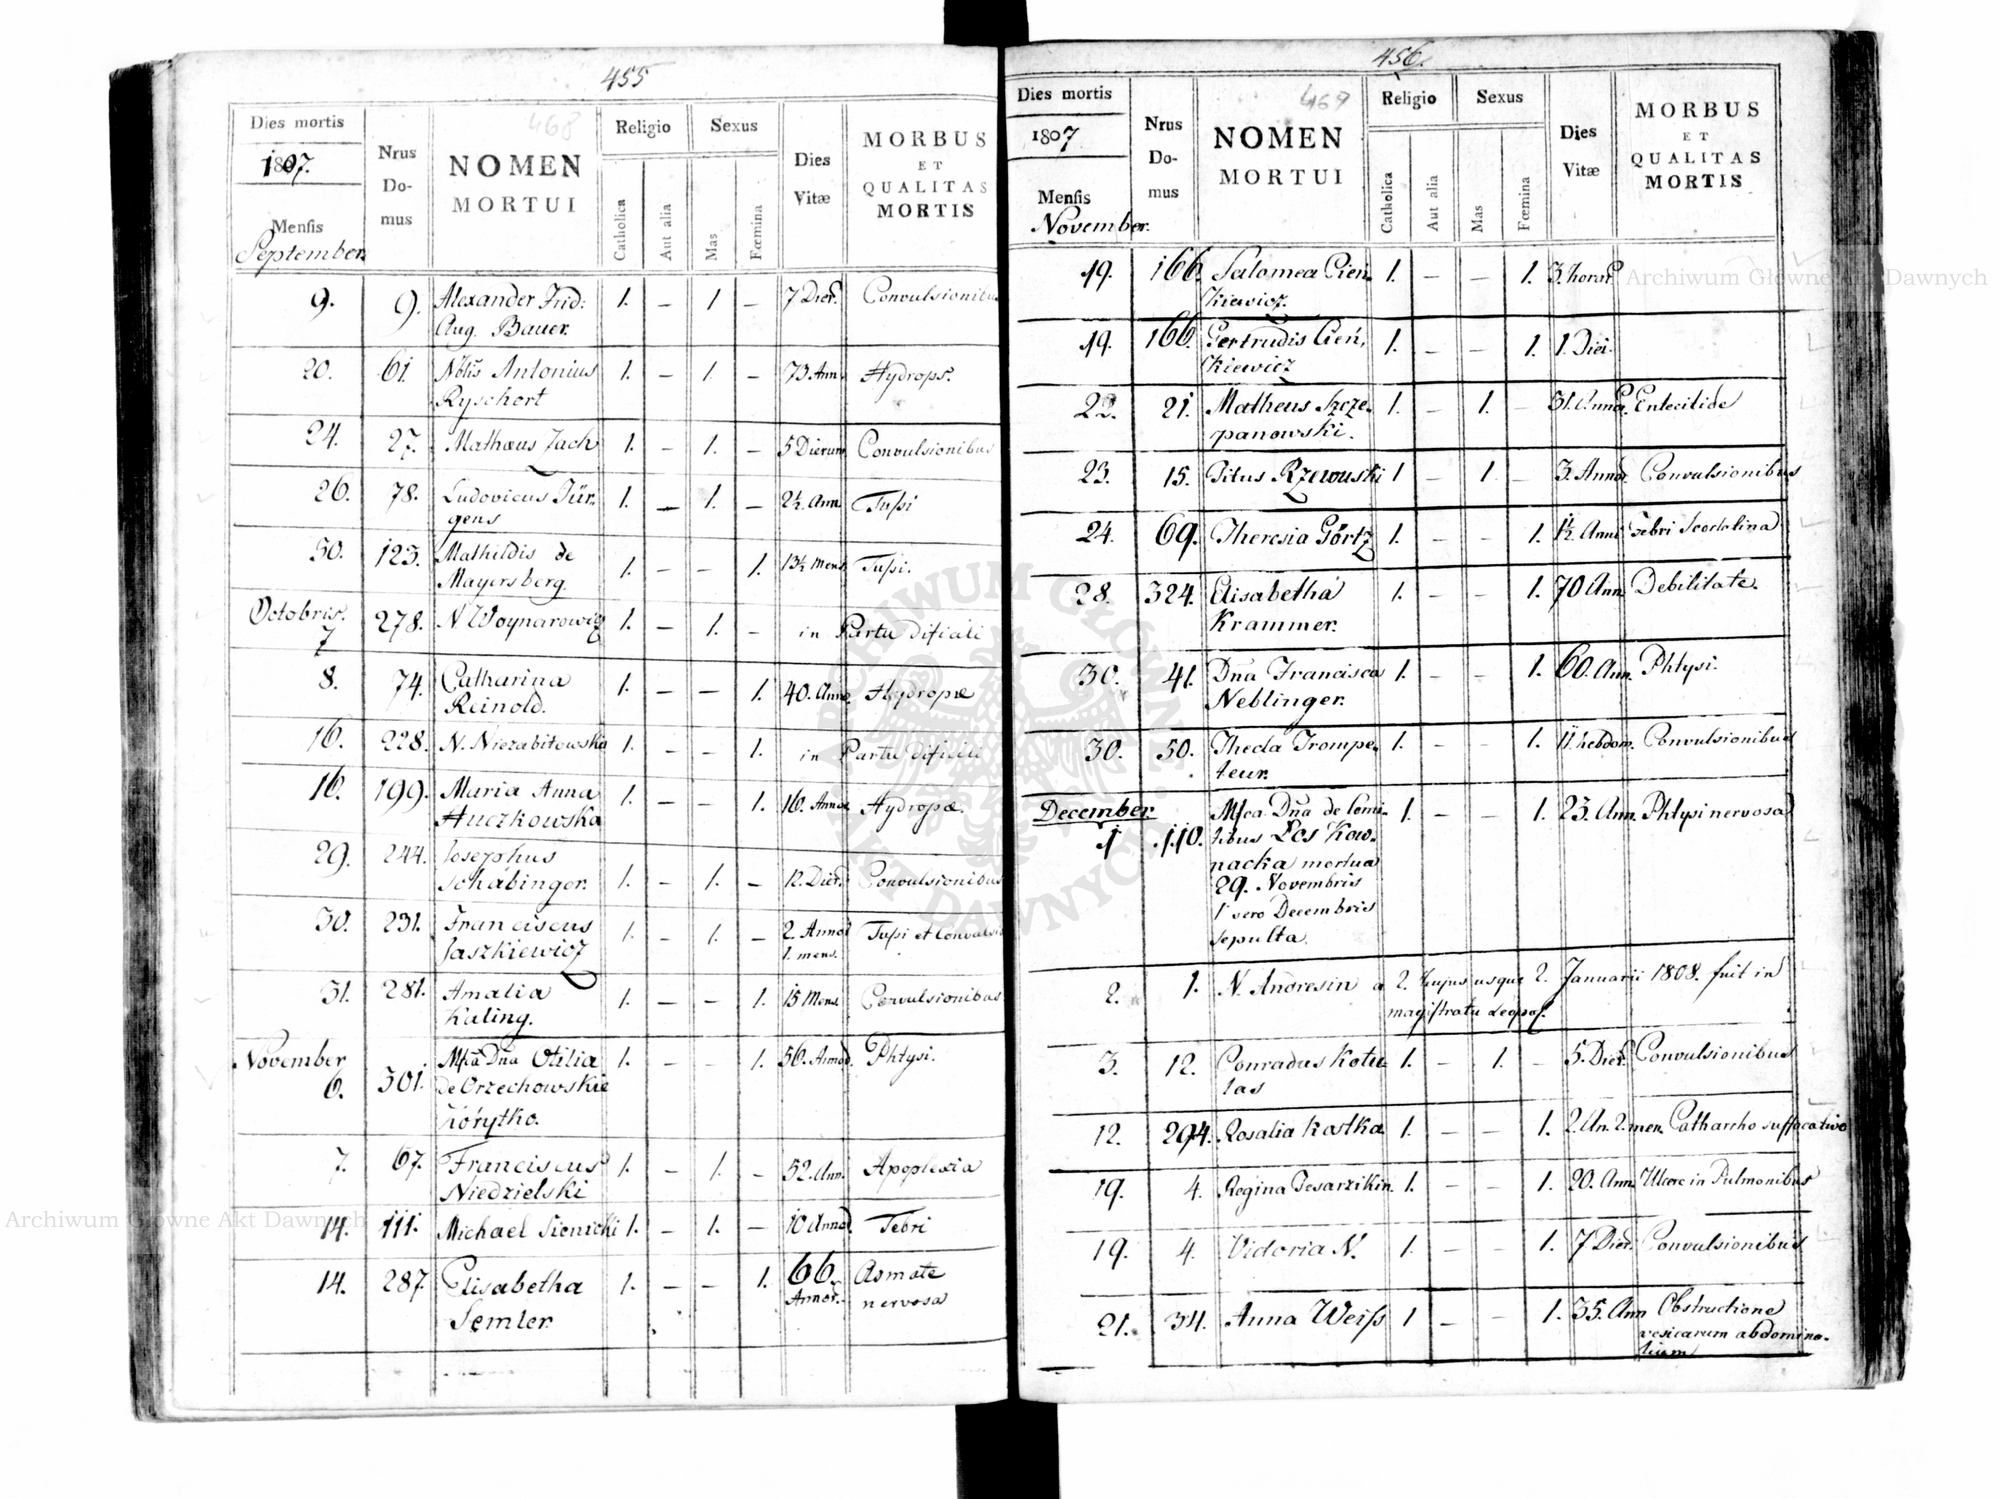 455
468
Dies mortis
1807.
Mensis
September.
Nrus
Do-
mus
NOMEN
MORTUI
Religio
Catholica
Aut alia
Sexus
Mas
Fœmina
Dies
Vitæ
MORBUS
ET
QUALITAS
MORTIS
9. 9. Alexander Frid: 1. — 1. — 7 Dier. Convulsionibus
Aug. Bauer.
20. 61. Nblis Antonius 1. — 1. — 73. Ann. Hydrops.
Ryschort
24. 27. Mathæus Zach 1. — 1. — 5 Dierum Convulsionibus
26. 78. Ludovicus Jür- 1. — 1. — 2½. Ann. Tussi
gens
30. 123. Mathildis de 1. — — 1. 13½ Mens. Tussi.
Mayersberg.
Octobris.
7 278. N Woynarowicz 1. — 1. — in Partu dificili
8. 74. Catharina 1. — — 1. 40. Anno. Hydropæ
Reinold.
16. 228. N. Niezabitowska 1. — — 1. in Partu dificili
16. 199. Maria Anna 1. — — 1. 16. Annor. Hydropæ.
Huczkowska
29. 244. Josephus
Schabinger. 1. — 1. — 12. Dier. Convulsionibus
30. 231. Franciscus 1. — 1. — 2. Annor. Tussi et Convulsio
Jaszkiewicz 1. mens.
31. 281. Amalia 1. — — 1. 15 Mens. Convulsionibus
Kaling.
November
6. 301. Mfca Dña Otilia 1. — — 1. 56. Annor. Phtysi.
de Orzechowskie
Korytko.
7. 67. Franciscus 1. — 1. — 52. Ann. Apoplexia
Niedzielski
14. 111. Michael Sienicki 1. — 1. — 10 Annor. Febri
14. 287. Elisabetha 1. — — 1. 66. Asmate
Semler. Annor. nervosa
456.
469
Dies mortis
1807
Mensis
November.
Nrus
Do-
mus
NOMEN
MORTUI
Religio
Catholica
Aut alia
Sexus
Mas
Fœmina
Dies
Vitæ
MORBUS
ET
QUALITAS
MORTIS
19. 166. Salomea Cień- 1. — — 1. 3. horar.
kiewicz.
19. 166. Gertrudis Cień- 1. — — 1. 1. Diei.
kiewicz
22. 21. Matheus Szcze- 1. — 1. — 31. Annor. Entecitide
panowski.
23. 15. Titus Rzewuski 1 — 1. — 3. Annor. Convulsionibus
24. 69. Theresia Görtz 1. — — 1. 1½ Anni Febri Scodalina
28. 324. Elisabetha 1. — — 1. 70 Ann. Debilitate.
Krammer.
30. 41. Dña Francisca 1. — — 1. 60. Ann. Phtysi.
Neblinger.
30. 50. Thecla Trompe- 1. — — 1. 11. hebdom. Convulsionibus
teur.
December.
1 110. Mfca Dña de Comi- 1. — — 1. 23. Ann. Phtysi nervosa
tibus Łos Kow-
nacka mortua
29. Novembris
1 vero Decembris
sepulta.
2. 1. N. Andresin a 2. hujus usque 2. Januarii 1808. fuit in
magistratu Leopol.
3. 12. Conradus Kotu- 1. — 1. — 5. Dier. Convulsionibus
las
12. 294. Rosalia Kostka 1. — — 1. 2. An. 2. men. Catharcho suffocativo
19. 4. Regina Tesarzikin. 1. — — 1. 20. Ann. Ulcere in Pulmonibus
19. 4. Victoria N. 1. — — 1. 7 Dier. Convulsionibus
21. 34. Anna Weiss 1 — — 1. 35. Ann Obstructione
vesicarum abdomina-
lium
Archiwum Główne Akt Dawnych
Archiwum Główne Akt Dawnych
ARCHIWUM GŁÓWNE AKT DAWNYCH